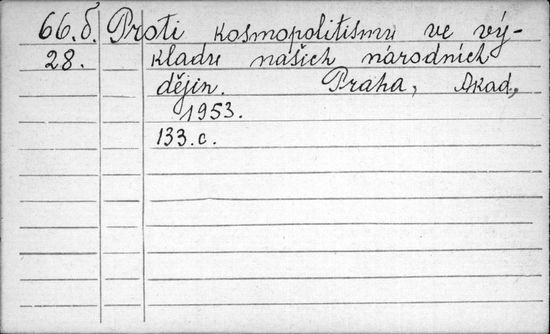 66.б. Proti kosmopolitismu ve vý-
28. kladu našich národních
dějin. Praha, Akad.,
1953.
133.c.